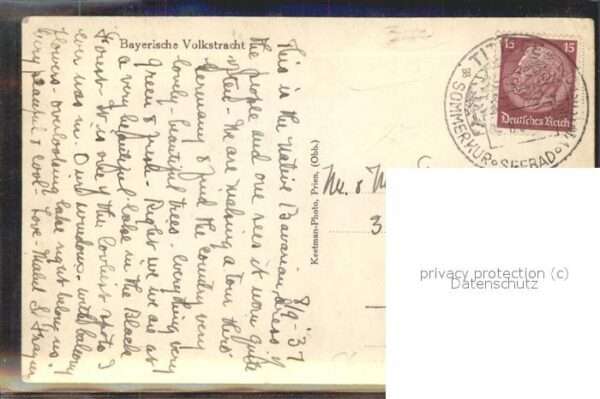 Bayerische Volkstracht
8/9-'37
This is the native Bavarian dress of
the people and one sees it worn quite
often - We are making a tour thro
Germany & find the country very
lovely - beautiful trees - everything very
green & fresh - Right now we are at
a very beautiful lake in the Black
Forest - It is one of the loveliest spots I
ever was in. Our windows - with balcony
flowers - overlooking lake right below us.
Very restful & cool - Love - Mabel &
Keetman-Photo, Prien, (Obb.)
15 15
Deutsches Reich
TIT
SOMMERKUR SEEBAD
Mr. & M
3
privacy protection (c)
Datenschutz